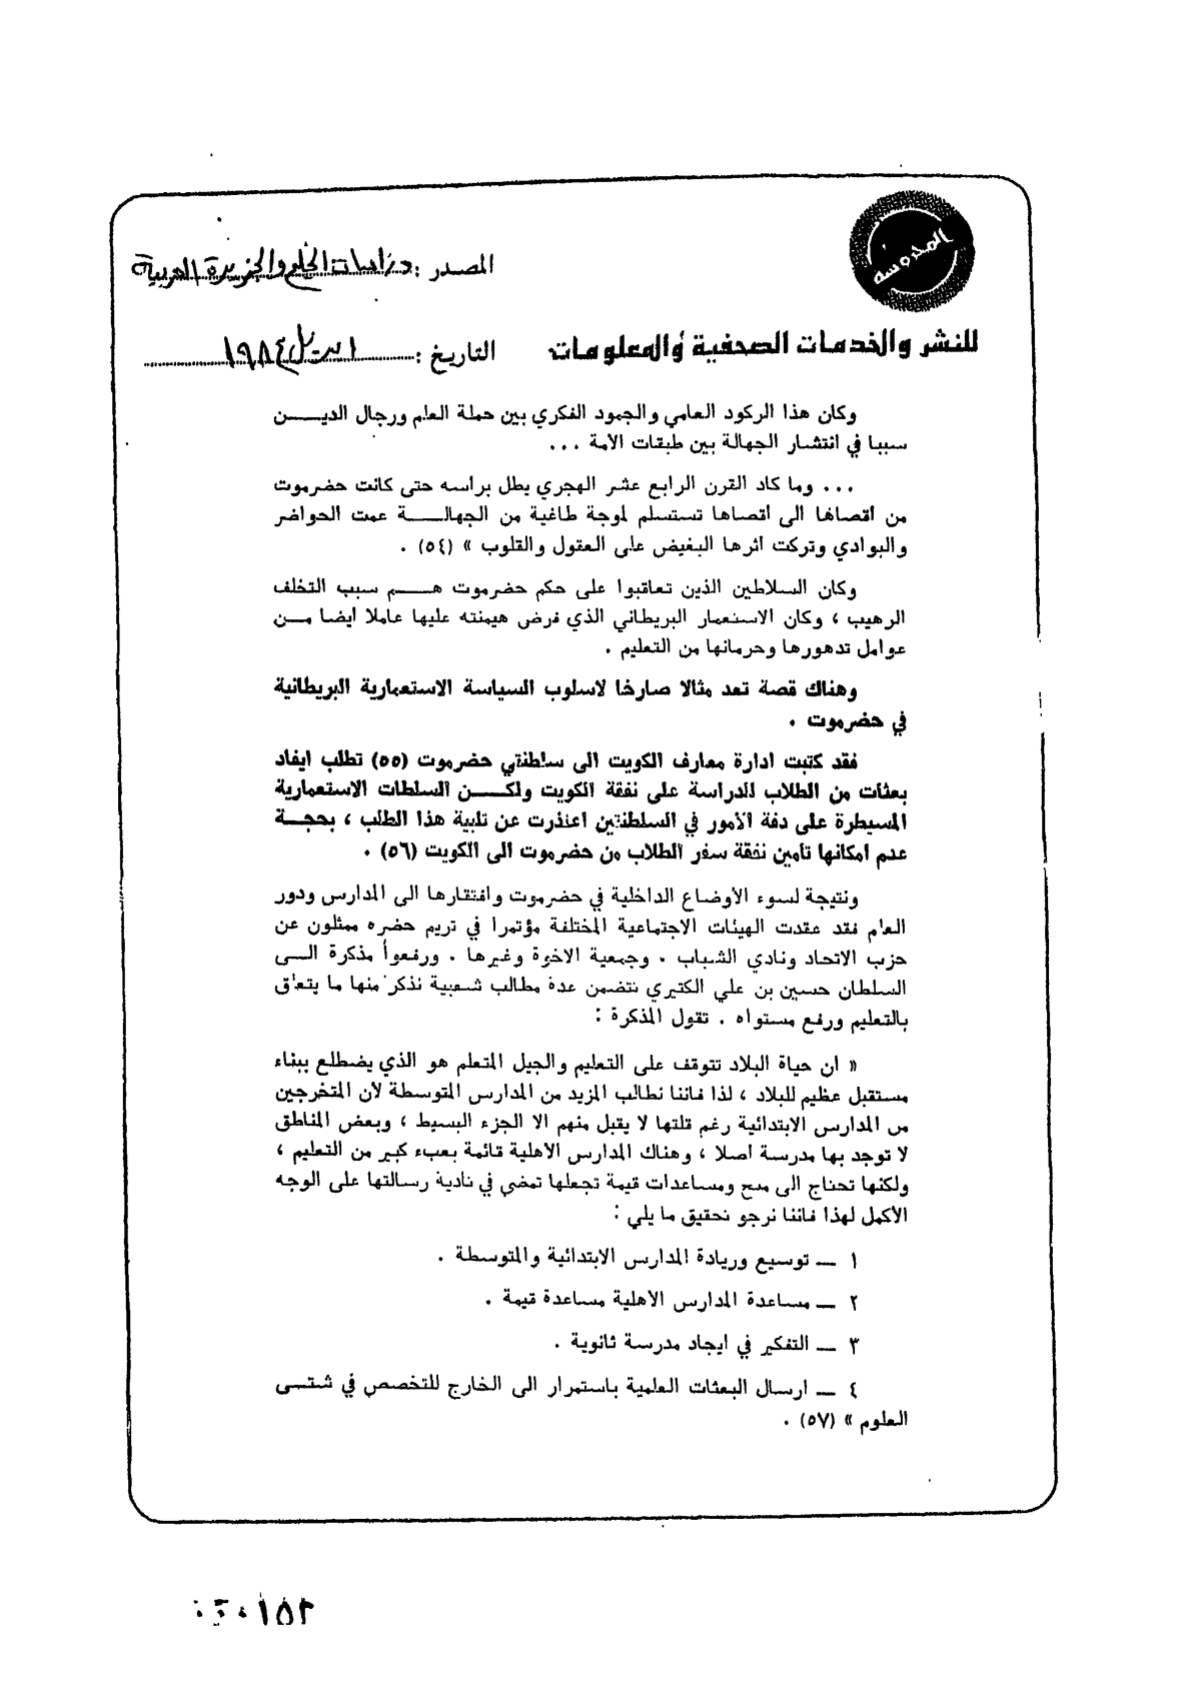 المحروسة
المصدر : دراسات الخليج والجزيرة العربية
للنشر والخدمات الصحفية والمعلومات
التاريخ : ١ ابريل ١٩٨٤
وكان هذا الركود العامي والجمود الفكري بين حملة العلم ورجال الديـــن
سببا في انتشار الجهالة بين طبقات الأمة ...
... وما كاد القرن الرابع عشر الهجري يطل براسه حتى كانت حضرموت
من اقصاها الى اقصاها تستسلم لموجة طاغية من الجهالـــة عمت الحواضر
والبوادي وتركت اثرها البغيض على العقول والقلوب » (٥٤) .
وكان السلاطين الذين تعاقبوا على حكم حضرموت هـــم سبب التخلف
الرهيب ، وكان الاستعمار البريطاني الذي فرض هيمنته عليها عاملا ايضا مـــن
عوامل تدهورها وحرمانها من التعليم .
وهناك قصة تعد مثالا صارخا لاسلوب السياسة الاستعمارية البريطانية
في حضرموت .
فقد كتبت ادارة معارف الكويت الى سلطنتي حضرموت (٥٥) تطلب ايفاد
بعثات من الطلاب للدراسة على نفقة الكويت ولكـــن السلطات الاستعمارية
المسيطرة على دفة الأمور في السلطنتين اعتذرت عن تلبية هذا الطلب ، بحجـــة
عدم امكانها تأمين نفقة سفر الطلاب من حضرموت الى الكويت (٥٦) .
ونتيجة لسوء الأوضاع الداخلية في حضرموت وافتقارها الى المدارس ودور
العلم فقد عقدت الهيئات الاجتماعية المختلفة مؤتمرا في تريم حضره ممثلون عن
حزب الاتحاد ونادي الشباب . وجمعية الاخوة وغيرها . ورفعوا مذكرة الـــى
السلطان حسين بن علي الكثيري تتضمن عدة مطالب شعبية نذكر منها ما يتعلق
بالتعليم ورفع مستواه . تقول المذكرة :
« ان حياة البلاد تتوقف على التعليم والجيل المتعلم هو الذي يضطلع ببناء
مستقبل عظيم للبلاد ، لذا فاننا نطالب المزيد من المدارس المتوسطة لأن المتخرجين
من المدارس الابتدائية رغم قلتها لا يقبل منهم الا الجزء البسيط ، وبعض المناطق
لا توجد بها مدرسة اصلا ، وهناك المدارس الاهلية قائمة بعبء كبير من التعليم ،
ولكنها تحتاج الى منح ومساعدات قيمة تجعلها تمضي في تادية رسالتها على الوجه
الأكمل لهذا فاننا نرجو تحقيق ما يلي :
١ — توسيع وزيادة المدارس الابتدائية والمتوسطة .
٢ — مساعدة المدارس الاهلية مساعدة قيمة .
٣ — التفكير في ايجاد مدرسة ثانوية .
٤ — ارسال البعثات العلمية باستمرار الى الخارج للتخصص في شتـــى
العلوم » (٥٧) .